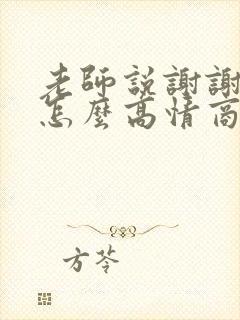 老師說謝謝
怎麼高情商
方苓